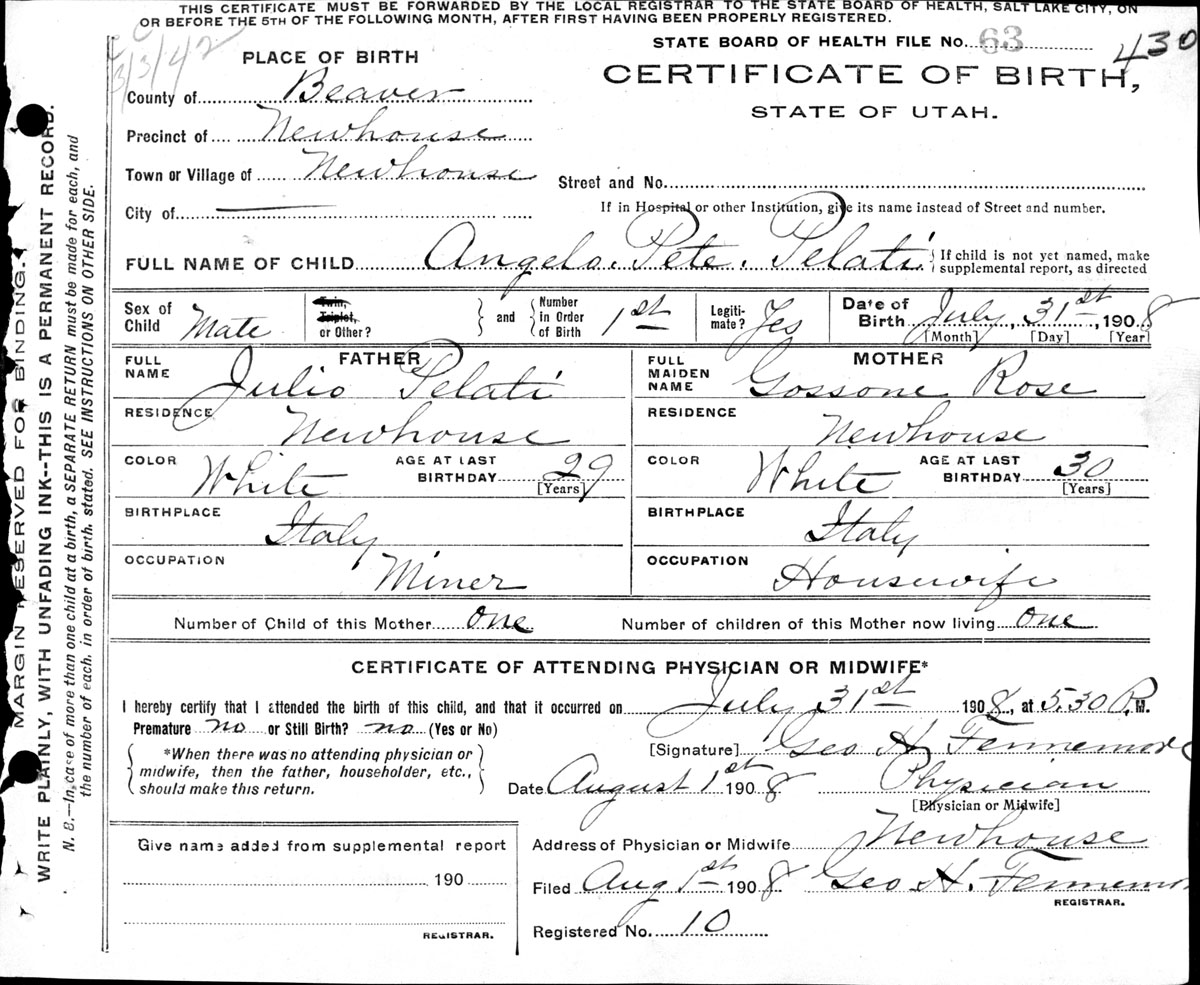 THIS CERTIFICATE MUST BE FORWARDED BY THE LOCAL REGISTRAR TO THE STATE BOARD OF HEALTH, SALT LAKE CITY, ON
OR BEFORE THE 5TH OF THE FOLLOWING MONTH, AFTER FIRST HAVING BEEN PROPERLY REGISTERED.
3/3/42
STATE BOARD OF HEALTH FILE No. 63
430
PLACE OF BIRTH
CERTIFICATE OF BIRTH,
STATE OF UTAH.
County of Beaver
Precinct of Newhouse
Town or Village of Newhouse
Street and No.
City of
If in Hospital or other Institution, give its name instead of Street and number.
FULL NAME OF CHILD Angelo. Pete. Pelati. If child is not yet named, make
supplemental report, as directed
Sex of Child Male Twin, Triplet, or Other? and Number in Order of Birth 1st Legiti-mate? Yes Date of Birth July, 31st, 1908
[Month] [Day] [Year]
FATHER
FULL NAME Julio Pelati
RESIDENCE Newhouse
COLOR White AGE AT LAST BIRTHDAY 29
[Years]
BIRTHPLACE Italy
OCCUPATION Miner
MOTHER
FULL MAIDEN NAME Gossone Rose
RESIDENCE Newhouse
COLOR White AGE AT LAST BIRTHDAY 30
[Years]
BIRTHPLACE Italy
OCCUPATION Housewife
Number of Child of this Mother one Number of children of this Mother now living one
CERTIFICATE OF ATTENDING PHYSICIAN OR MIDWIFE*
I hereby certify that I attended the birth of this child, and that it occurred on July 31st 1908, at 5.30 P.M.
Premature no or Still Birth? no (Yes or No)
*When there was no attending physician or
midwife, then the father, householder, etc.,
should make this return.
[Signature] Geo H. Fennemore
Date August 1st 1908 Physician
[Physician or Midwife]
Give name added from supplemental report
190
REGISTRAR.
Address of Physician or Midwife Newhouse
Filed Aug 1st 1908 Geo H. Fennemor
REGISTRAR.
Registered No. 10
MARGIN RESERVED FOR BINDING.
WRITE PLAINLY, WITH UNFADING INK--THIS IS A PERMANENT RECORD.
N. B.—In case of more than one child at a birth, a SEPARATE RETURN must be made for each, and
the number of each, in order of birth, stated. SEE INSTRUCTIONS ON OTHER SIDE.